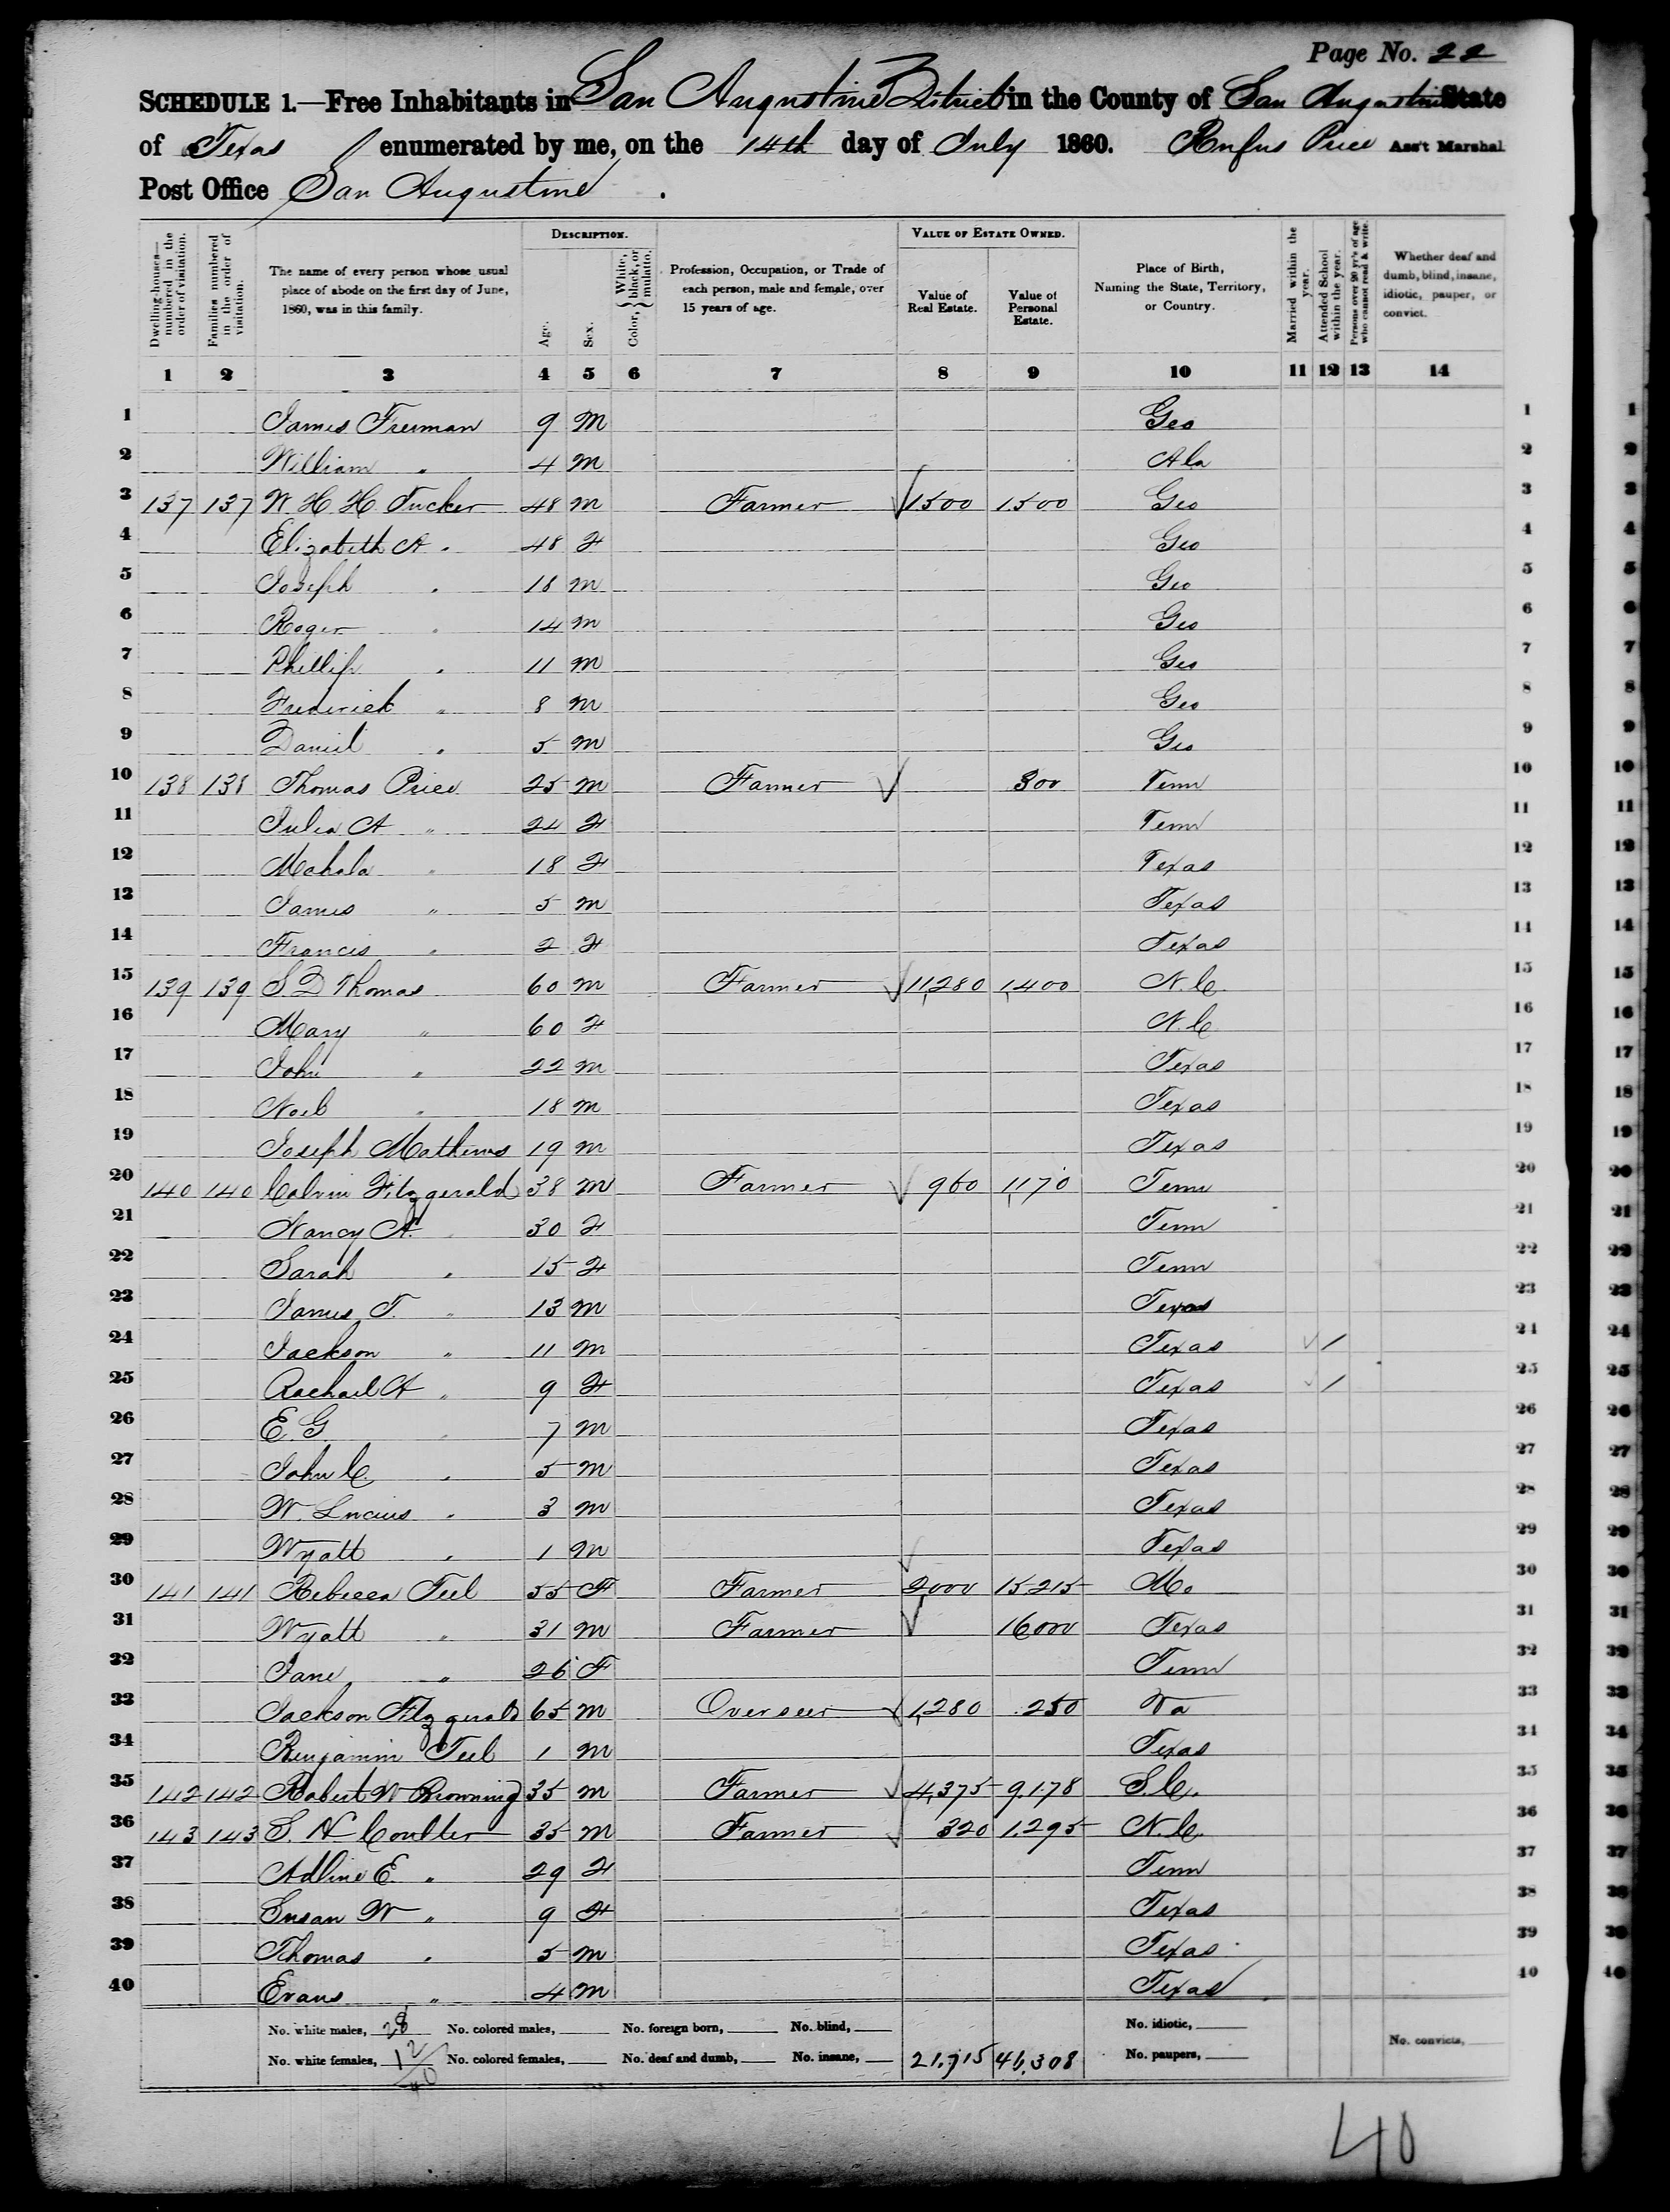 Page No. 22
SCHEDULE 1.—Free Inhabitants in San Augustine District in the County of San Augustine State
of Texas enumerated by me, on the 14th day of July 1860. Rufus Price Ass't Marshal
Post Office San Augustine .
Dwelling-houses— numbered in the order of visitation.
Families numbered in the order of visitation.
The name of every person whose usual place of abode on the first day of June, 1860, was in this family.
DESCRIPTION.
Age.
Sex.
Color, { White, black, or mulatto.
Profession, Occupation, or Trade of each person, male and female, over 15 years of age.
VALUE OF ESTATE OWNED.
Value of Real Estate.
Value of Personal Estate.
Place of Birth, Naming the State, Territory, or Country.
Married within the year.
Attended School within the year.
Persons over 20 yr's of age who cannot read & write.
Whether deaf and dumb, blind, insane, idiotic, pauper, or convict.
1 2 3 4 5 6 7 8 9 10 11 12 13 14
1 James Freeman 9 M Geo 1
2 William " 4 M Ala 2
3 137 137 W. H. H. Tucker 48 M Farmer 1500 1500 Geo 3
4 Elizabeth A " 48 F Geo 4
5 Joseph " 18 M Geo 5
6 Roger " 14 M Geo 6
7 Phillip " 11 M Geo 7
8 Frederick " 8 M Geo 8
9 Daniel " 5 M Geo 9
10 138 138 Thomas Price 25 M Farmer 300 Tenn 10
11 Julia A " 24 F Tenn 11
12 Mahala " 18 F Texas 12
13 James " 5 M Texas 13
14 Francis " 2 F Texas 14
15 139 139 S. D Thomas 60 M Farmer 11,280 1,400 N.C. 15
16 Mary " 60 F N.C 16
17 John " 22 M Texas 17
18 Noel " 18 M Texas 18
19 Joseph Mathews 19 M Texas 19
20 140 140 Calvin Fitzgerald 38 M Farmer 960 1,170 Tenn 20
21 Nancy A. " 30 F Tenn 21
22 Sarah " 15 F Tenn 22
23 James T. " 13 M Texas 23
24 Jackson " 11 M Texas / 24
25 Rachael A " 9 F Texas / 25
26 E. G. " 7 M Texas 26
27 John C. " 5 M Texas 27
28 W. Lucius " 3 M Texas 28
29 Wyatt " 1 M Texas 29
30 141 141 Rebecca Teel 55 F Farmer 2000 15.215 Mo 30
31 Wyatt " 31 M Farmer 16000 Texas 31
32 Jane " 26 F Tenn 32
33 Jackson Fitzgerald 65 M Overseer 1,280 .250 Va 33
34 Benjamin Teel 1 M Texas 34
35 142 142 Robert W Browning 35 M Farmer 4,375 9.178 S.C. 35
36 143 143 S. N Coulter 35 M Farmer 320 1.295 N.C. 36
37 Adline E. " 29 F Tenn 37
38 Susan W " 9 F Texas 38
39 Thomas " 5 M Texas 39
40 Evans " 4 M Texas 40
No. white males, 28 No. colored males, No. foreign born, No. blind, No. idiotic,
No. white females, 12 No. colored females, No. deaf and dumb, No. insane, 21.715 46,308 No. paupers, No. convicts,
40
40